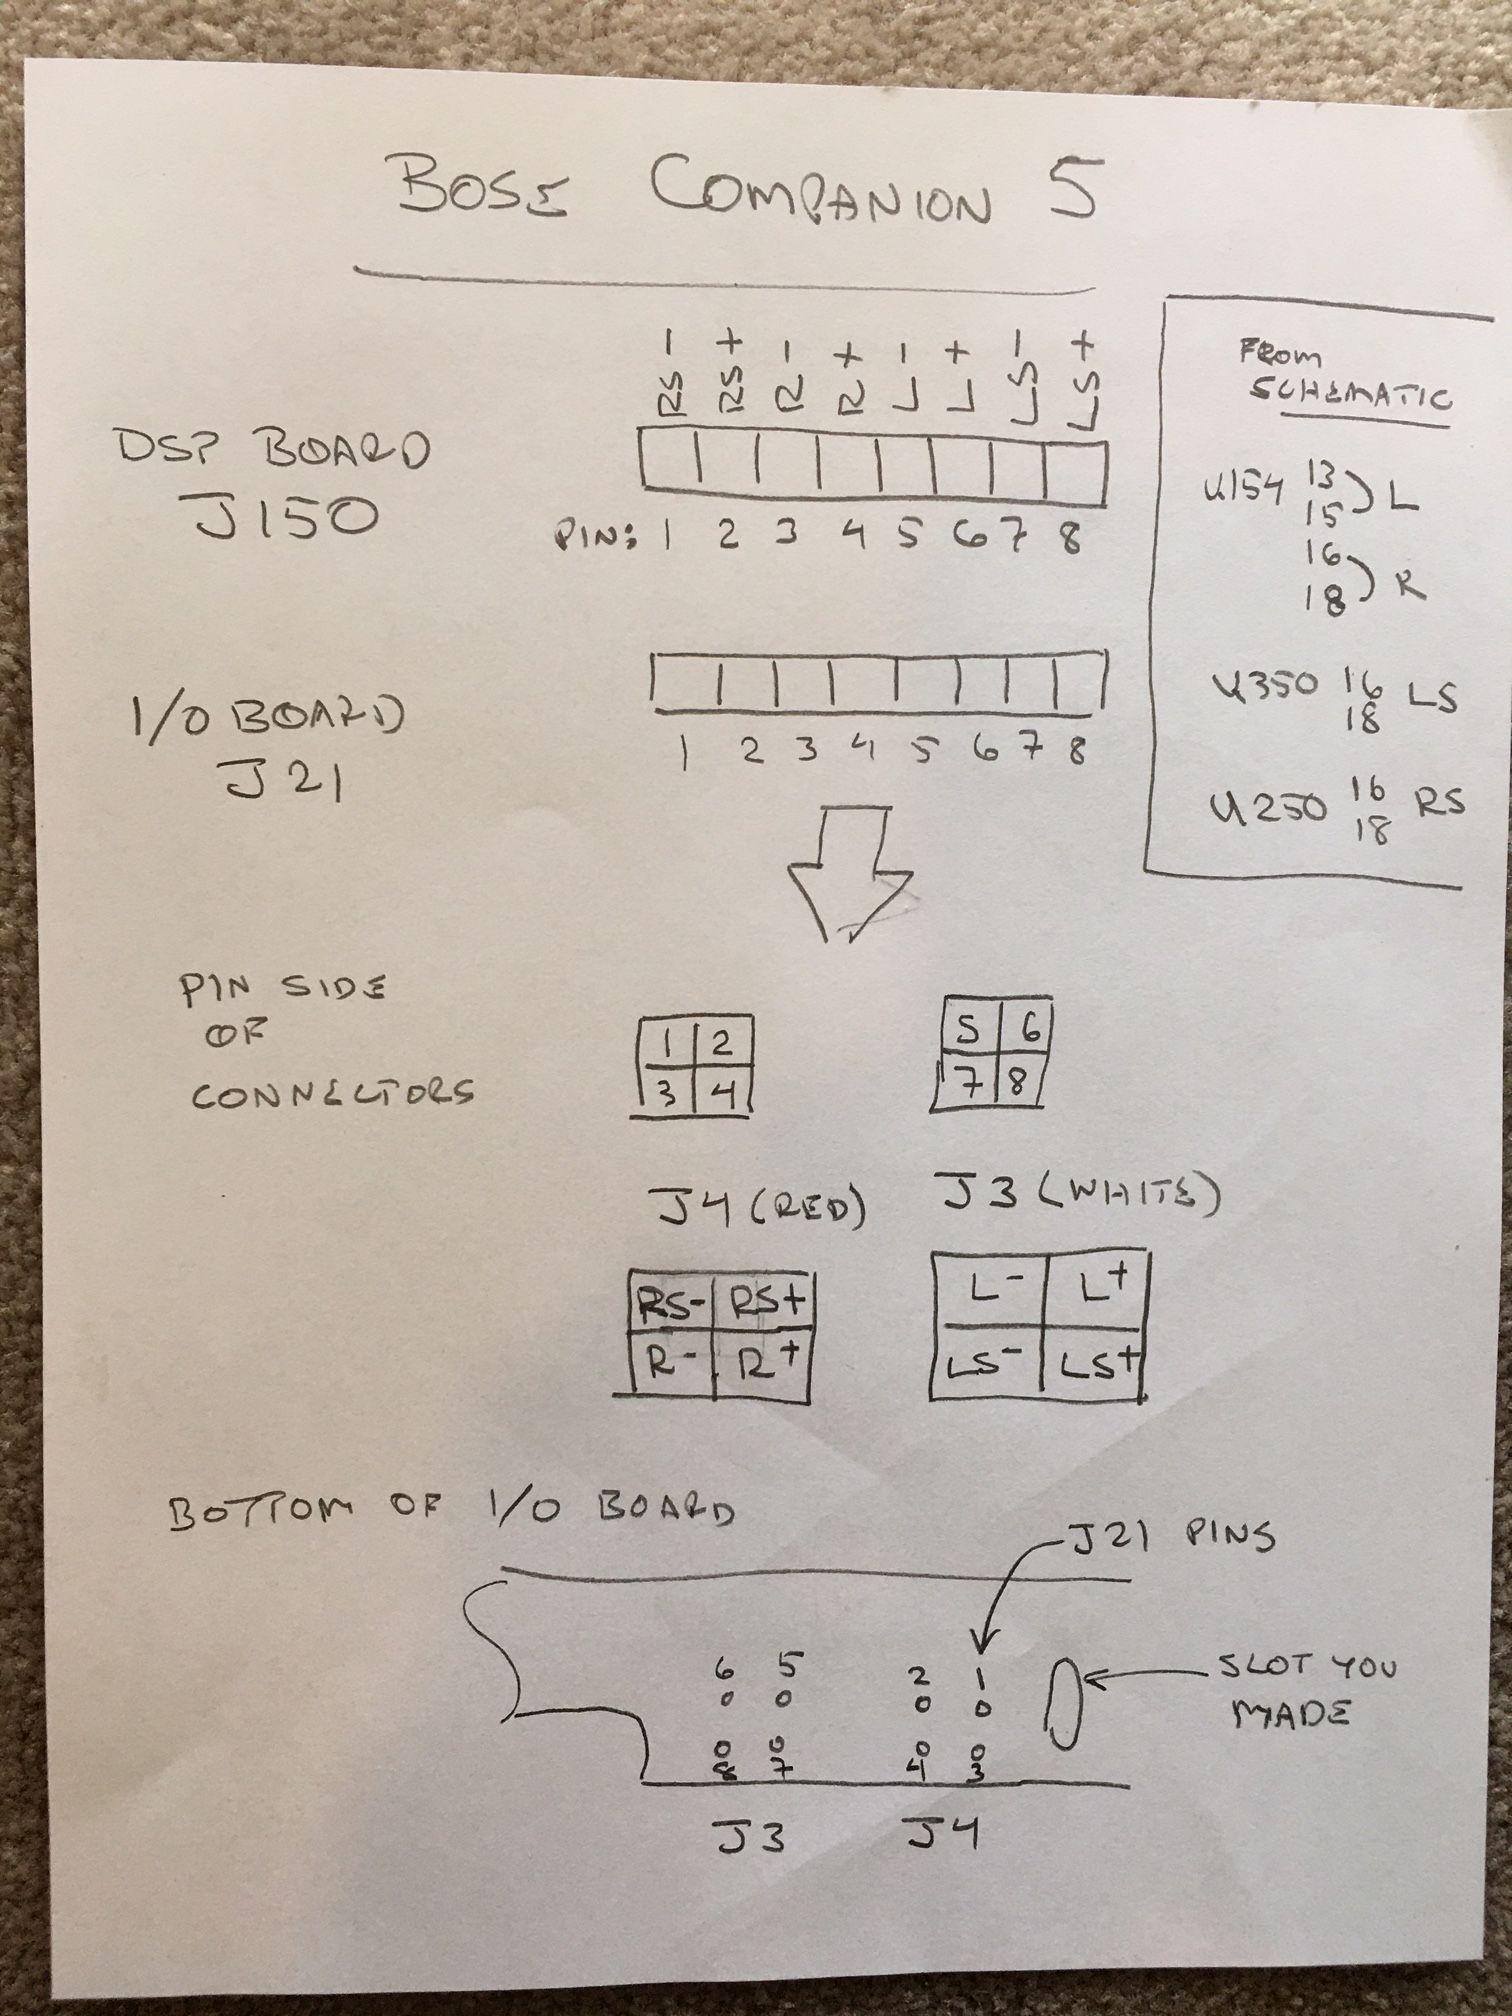 BOSE COMPANION 5
RS- RS+ R- R+ L- L+ LS- LS+
DSP BOARD
J150
PIN: 1 2 3 4 5 6 7 8
FROM
SCHEMATIC
U154 13
15 ) L
16
18 ) R
U350 16 LS
18
U250 16 RS
18
I/O BOARD
J21
1 2 3 4 5 6 7 8
PIN SIDE
OF
CONNECTORS
1 2
3 4
5 6
7 8
J4 (RED)
J3 (WHITE)
RS- RS+
R- R+
L- L+
LS- LS+
BOTTOM OF I/O BOARD
J21 PINS
6 5 2 1
8 7 4 3
SLOT YOU
MADE
J3 J4